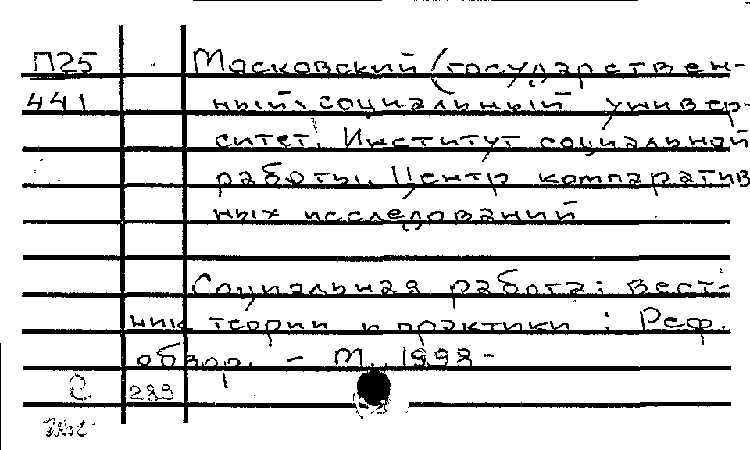 П25 Московский государствен-
441 ный социальный универ-
ситет. Институт социальной
работы. Центр компаратив
ных исследований
Социальная работа: вест-
ник теории и практики : Реф.
обзор. - М., 1998-
С 289